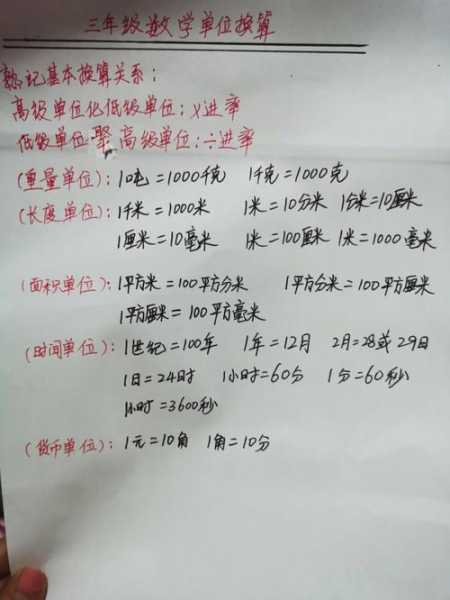 三年级数学单位换算
熟记基本换算关系：
高级单位化低级单位：×进率
低级单位聚高级单位：÷进率
(重量单位)：1吨=1000千克 1千克=1000克
(长度单位)：1千米=1000米 1米=10分米 1分米=10厘米
1厘米=10毫米 1米=100厘米 1米=1000毫米
(面积单位)：1平方米=100平方分米 1平方分米=100平方厘米
1平方厘米=100平方毫米
(时间单位)：1世纪=100年 1年=12月 2月=28或29日
1日=24时 1小时=60分 1分=60秒
1小时=3600秒
(货币单位)：1元=10角 1角=10分